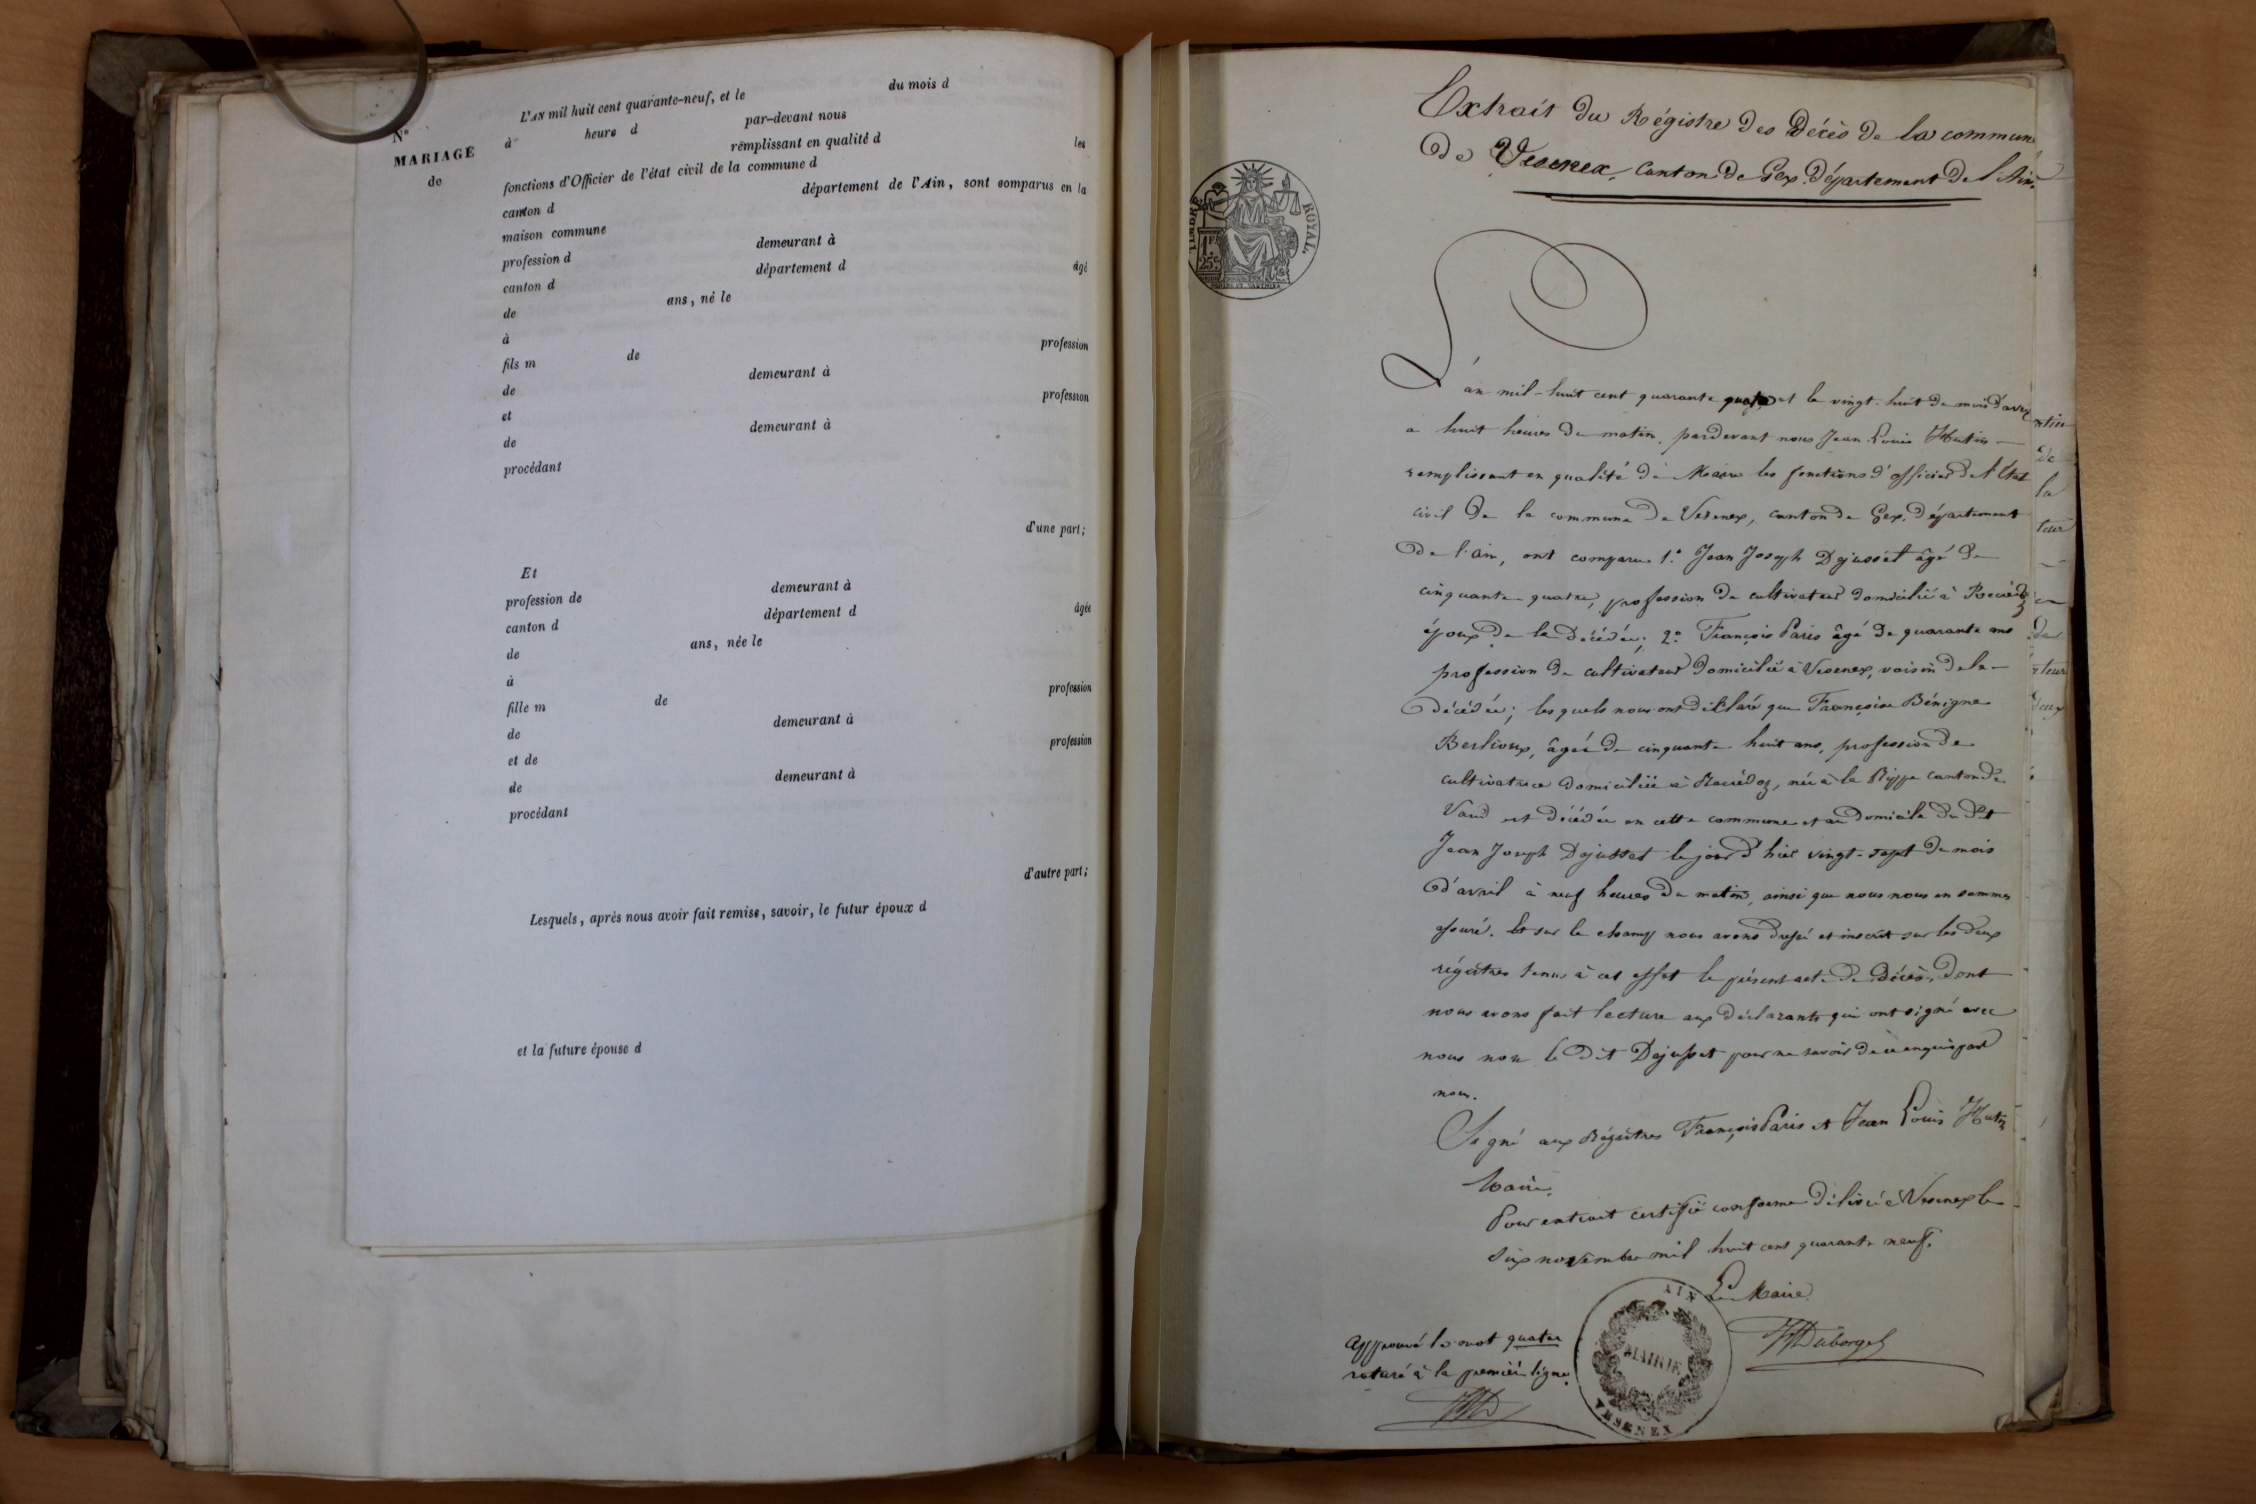 N°
MARIAGE
de
L'AN mil huit cent quarante-neuf, et le du mois d
à heure d par-devant nous
remplissant en qualité d les
fonctions d'Officier de l'état civil de la commune d
canton d département de l'Ain, sont comparus en la
maison commune
profession d demeurant à
canton d département d âgé
de ans, né le
à
fils m de profession
de demeurant à
et profession
de demeurant à
procédant
d'une part;
Et
profession de demeurant à
canton d département d âgée
de ans, née le
à
fille m de profession
de demeurant à
et de profession
de demeurant à
procédant
d'autre part;
Lesquels, après nous avoir fait remise, savoir, le futur époux d
et la future épouse d
Extrait du Régistre des Décès de la commune
De Vesenex, Canton de Gex, département de l'Ain.
TIMBRE ROYAL
1 F.
25 c.
L'an mil-huit cent quarante quatre et le vingt-huit du mois d'avril
a huit heures du matin, pardevant nous Jean Louis Hutin
remplissant en qualité de Maire les fonctions d'officier de l'Etat
civil de la commune de Vesenex, canton de Gex, département
de l'ain, ont comparu 1.° Jean Joseph Dejusset âgé de
cinquante quatre, profession de cultivateur domicilié à
époux de la décédée; 2.° François Paris âgé de quarante ans
profession de cultivateur domicilié à Vesenex, voisin de la
décédée; lesquels nous ont déclaré que Françoise Bénigne
Berlioux, âgée de cinquante huit ans, profession de
cultivatrice domiciliée à née à la Rippe canton de
Vaud est décédée en cette commune et au domicile du dit
Jean Joseph Dejusset le jour d'hier vingt-sept du mois
d'avril à neuf heures du matin, ainsi que nous nous en sommes
assuré. Et sur le champ nous avons dressé et inscrit sur les deux
régistres tenus à cet effet le présent acte de Décès, dont
nous avons fait lecture aux déclarants qui ont signé avec
nous non le dit Dejusset pour ne savoir de ce enquis par
nous.
Signé aux Régistres François Paris et Jean Louis Hutin
Maire.
Pour extrait certifié conforme délivré à Vesenex le
six novembre mil huit cent quarante neuf.
Le Maire
Duborgel
Approuvé le mot quatre
raturé à la premièr ligne.
AIN
MAIRIE
VESENEX